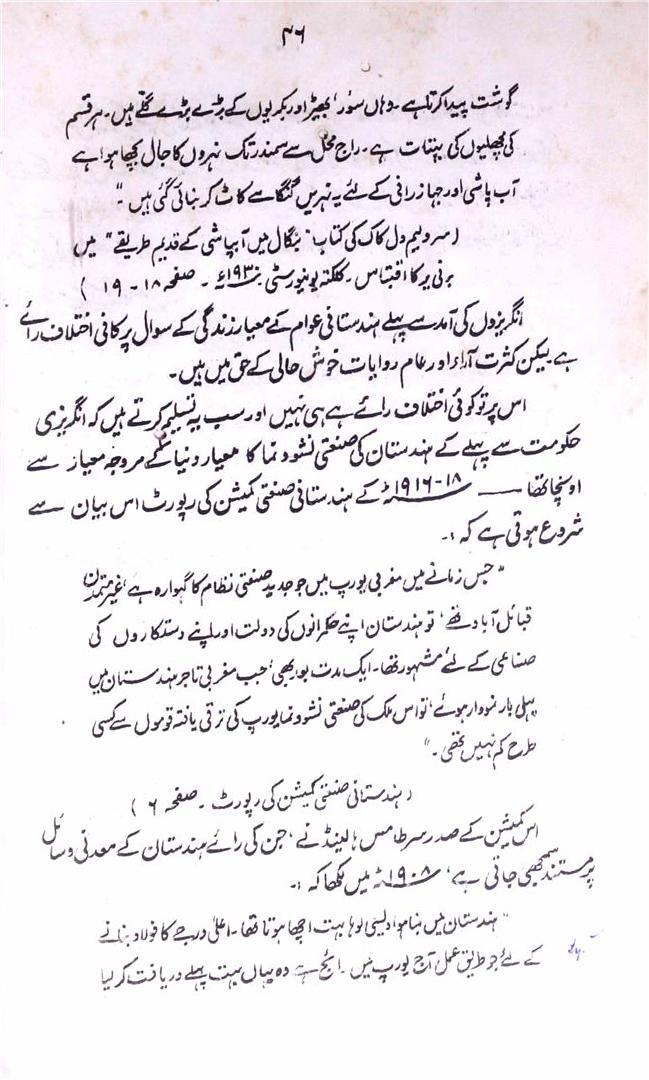 ۴۶
گوشت پیدا کرتا ہے۔ وہاں سوٗر، بھیڑ اور بکریوں کے بڑے بڑے گلّے ہیں۔ ہر قسم
کی مچھلیوں کی بہتات ہے۔ راج محل سے سمندر تک نہروں کا جال بچھا ہوا ہے
آب پاشی اور جہاز رانی کے لئے یہ نہریں گنگا سے کاٹ کر بنائی گئی ہیں۔"
(سر ولیم ول کاک کی کتاب "بنگال میں آبپاشی کے قدیم طریقے" میں
برنی یر کا اقتباس۔ کلکتہ یونیورسٹی ۱۹۳۰ء۔ صفحہ ۱۸-۱۹)
انگریزوں کی آمد سے پہلے ہندستانی عوام کے معیار زندگی کے سوال پر کافی اختلاف رائے
ہے لیکن کثرت آراء اور عام روایات خوش حالی کے حق میں ہیں۔
اس پر تو کوئی اختلاف رائے ہے ہی نہیں اور سب یہ تسلیم کرتے ہیں کہ انگریزی
حکومت سے پہلے کے ہندستان کی صنعتی نشوونما کا معیار دنیا کے مروجہ معیار سے
اونچا تھا —— ۱۸-۱۹۱۶ء کے ہندستانی صنعتی کمیشن کی رپورٹ اس بیان سے
شروع ہوتی ہے کہ :۔
"جس زمانے میں مغربی یورپ میں جو جدید صنعتی نظام کا گہوارہ ہے، غیر متمدن
قبائل آباد تھے، تو ہندستان اپنے حکمرانوں کی دولت اور اپنے دستکاروں کی
صناعی کے لئے مشہور تھا۔ ایک مدت بعد بھی، جب مغربی تاجر ہندستان میں
پہلی بار نمودار ہوئے، تو اس ملک کی صنعتی نشوونما یورپ کی ترقی یافتہ قوموں سے کسی
طرح کم نہیں تھی۔"
(ہندستانی صنعتی کمیشن کی رپورٹ۔ صفحہ ۶)
اس کمیشن کے صدر سر طامس ہالینڈ نے، جن کی رائے ہندستان کے معدنی وسائل
پر مستند سمجھی جاتی ہے، ۱۹۰۸ء میں لکھا کہ :۔
"ہندستان میں بنا ہوا دیسی لوہا بہت اچھا ہوتا تھا۔ اعلیٰ درجے کا فولاد بنانے
کے لئے جو طریق عمل آج یورپ میں۔ رائج ہے وہ یہاں بہت پہلے دریافت کر لیا